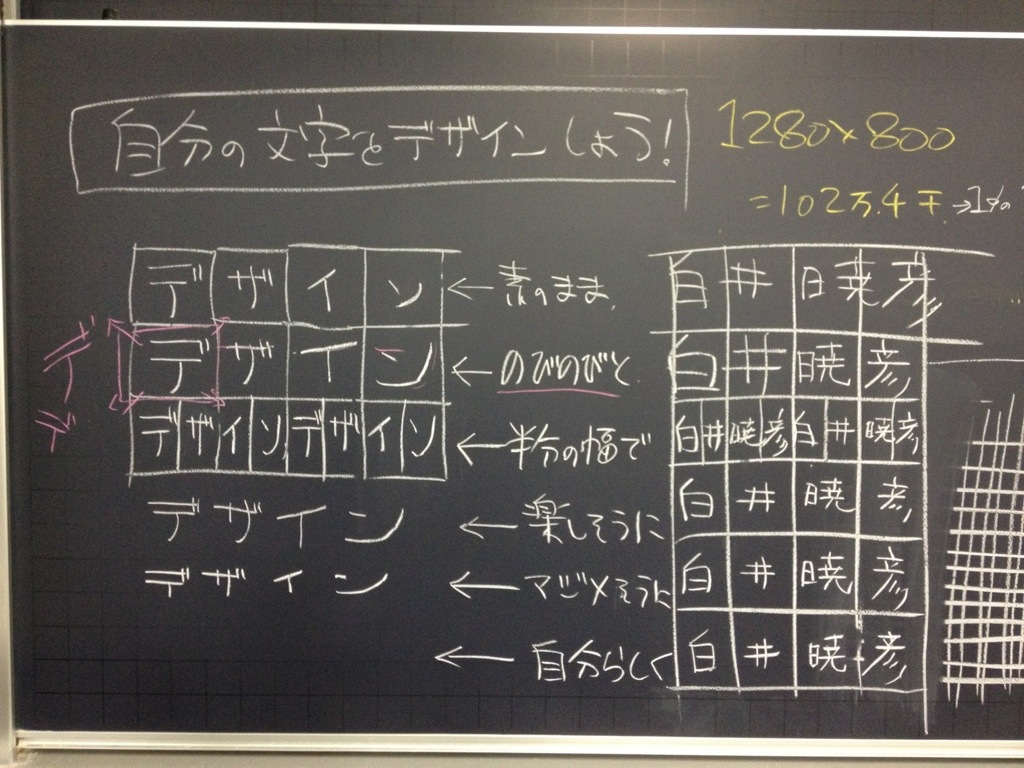 自分の文字をデザインしよう!
1280×800
=102万.4千→1%の
デザイン ←素のまま
デザイン ←のびのびと
デザインデザイン ←半分の幅で
デザイン ←楽しそうに
デザイン ←マジメそうに
←自分らしく
デザ
白井暁彦
白井暁彦
白井暁彦白井暁彦
白井暁彦
白井暁彦
白井暁彦